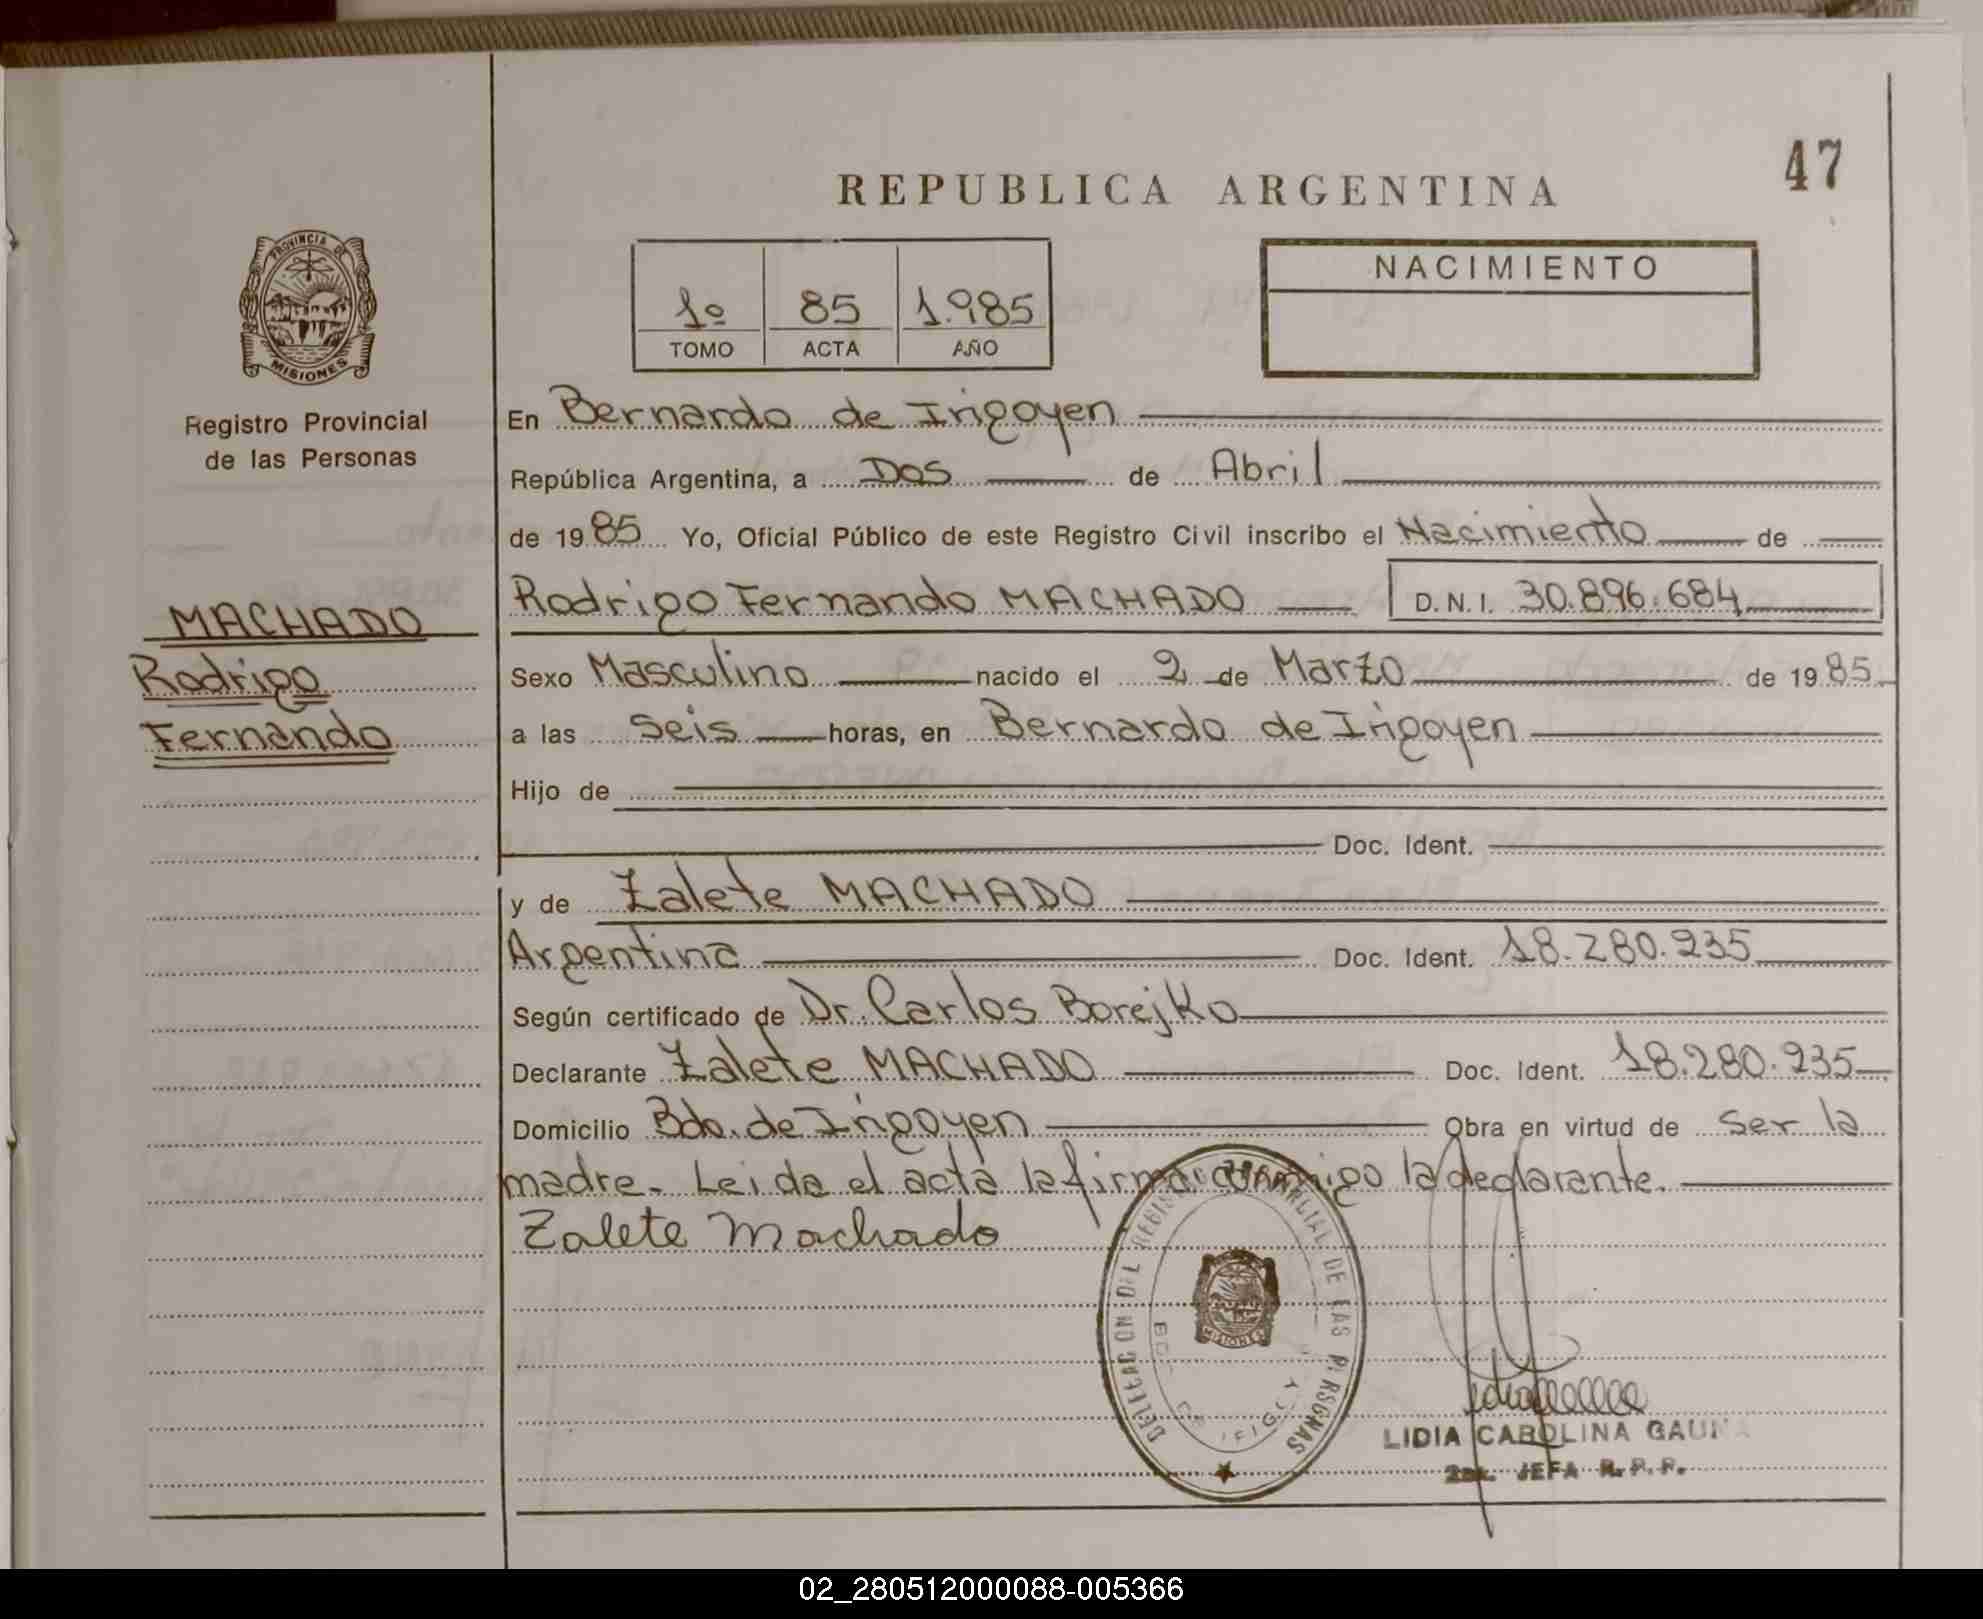 47
REPUBLICA ARGENTINA
PROVINCIA DE
MISIONES
Registro Provincial
de las Personas
1º 85 1.985
TOMO ACTA AÑO
NACIMIENTO
En Bernardo de Irigoyen
República Argentina, a Dos de Abril
de 1985 Yo, Oficial Público de este Registro Civil inscribo el Nacimiento de
Rodrigo Fernando MACHADO D.N.I. 30.896.684
MACHADO
Rodrigo
Fernando
Sexo Masculino nacido el 2 de Marzo de 1985
a las Seis horas, en Bernardo de Irigoyen
Hijo de
Doc. Ident.
y de Zalete MACHADO
Argentina Doc. Ident. 18.280.235
Según certificado de Dr. Carlos Borejko
Declarante Zalete MACHADO Doc. Ident. 18.280.235
Domicilio Bdo. de Irigoyen Obra en virtud de ser la
madre. Leida el acta la firma conmigo la declarante.
Zalete Machado
DELEGACION DEL REGISTRO PROVINCIAL DE LAS PERSONAS
MISIONES
LIDIA CAROLINA GAUNA
JEFA R.P.P.
02_280512000088-005366